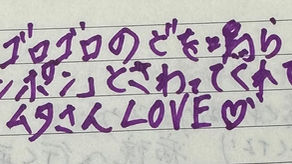 ゴロゴロのどを鳴ら
ンポン」とさわってくれて
ムタさん LOVE♡